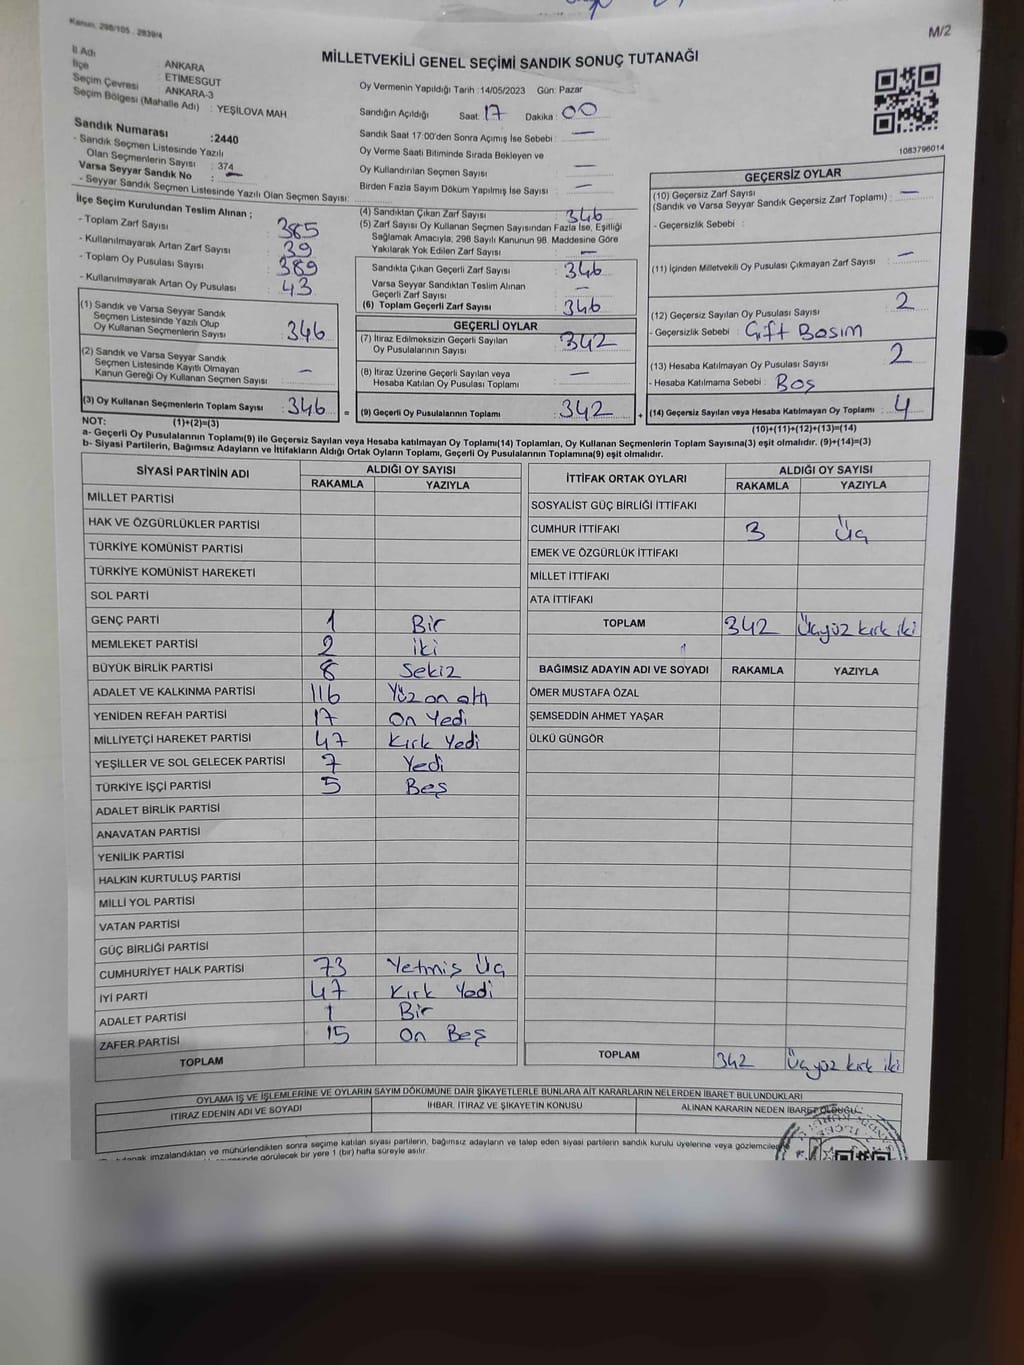 Kanun, 298/105 - 2839/4
M/2
MİLLETVEKİLİ GENEL SEÇİMİ SANDIK SONUÇ TUTANAĞI
İl Adı : ANKARA
İlçe : ETİMESGUT
Seçim Çevresi : ANKARA-3
Seçim Bölgesi (Mahalle Adı) : YEŞİLOVA MAH
Sandık Numarası :2440
- Sandık Seçmen Listesinde Yazılı
Olan Seçmenlerin Sayısı : 374
Varsa Seyyar Sandık No : —
- Seyyar Sandık Seçmen Listesinde Yazılı Olan Seçmen Sayısı:
Oy Vermenin Yapıldığı Tarih :14/05/2023 Gün: Pazar
Sandığın Açıldığı Saat: 17 Dakika : 00
Sandık Saat 17:00'den Sonra Açımış İse Sebebi : —
Oy Verme Saati Bitiminde Sırada Bekleyen ve
Oy Kullandırılan Seçmen Sayısı : —
Birden Fazla Sayım Döküm Yapılmış İse Sayısı : —
1083796014
İlçe Seçim Kurulundan Teslim Alınan ;
- Toplam Zarf Sayısı : 385
- Kullanılmayarak Artan Zarf Sayısı : 39
- Toplam Oy Pusulası Sayısı : 389
- Kullanılmayarak Artan Oy Pusulası : 43
(1) Sandık ve Varsa Seyyar Sandık
Seçmen Listesinde Yazılı Olup
Oy Kullanan Seçmenlerin Sayısı : 346
(2) Sandık ve Varsa Seyyar Sandık
Seçmen Listesinde Kayıtlı Olmayan
Kanun Gereği Oy Kullanan Seçmen Sayısı : —
(3) Oy Kullanan Seçmenlerin Toplam Sayısı : 346 =
(4) Sandıktan Çıkan Zarf Sayısı : 346
(5) Zarf Sayısı Oy Kullanan Seçmen Sayısından Fazla İse, Eşitliği
Sağlamak Amacıyla, 298 Sayılı Kanunun 98. Maddesine Göre
Yakılarak Yok Edilen Zarf Sayısı : —
Sandıkta Çıkan Geçerli Zarf Sayısı : 346
Varsa Seyyar Sandıktan Teslim Alınan
Geçerli Zarf Sayısı : —
(6) Toplam Geçerli Zarf Sayısı : 346
GEÇERLİ OYLAR
(7) İtiraz Edilmeksizin Geçerli Sayılan
Oy Pusulalarının Sayısı : 342
(8) İtiraz Üzerine Geçerli Sayılan veya
Hesaba Katılan Oy Pusulası Toplamı : —
(9) Geçerli Oy Pusulalarının Toplamı : 342 +
GEÇERSİZ OYLAR
(10) Geçersiz Zarf Sayısı
(Sandık ve Varsa Seyyar Sandık Geçersiz Zarf Toplamı) : —
- Geçersizlik Sebebi :
(11) İçinden Milletvekili Oy Pusulası Çıkmayan Zarf Sayısı : —
(12) Geçersiz Sayılan Oy Pusulası Sayısı : 2
- Geçersizlik Sebebi : Çift Basım
(13) Hesaba Katılmayan Oy Pusulası Sayısı : 2
- Hesaba Katılmama Sebebi : Boş
(14) Geçersiz Sayılan veya Hesaba Katılmayan Oy Toplamı : 4
NOT: (1)+(2)=(3) (10)+(11)+(12)+(13)=(14)
a- Geçerli Oy Pusulalarının Toplamı(9) ile Geçersiz Sayılan veya Hesaba katılmayan Oy Toplamı(14) Toplamları, Oy Kullanan Seçmenlerin Toplam Sayısına(3) eşit olmalıdır. (9)+(14)=(3)
b- Siyasi Partilerin, Bağımsız Adayların ve İttifakların Aldığı Ortak Oyların Toplamı, Geçerli Oy Pusulalarının Toplamına(9) eşit olmalıdır.
SİYASİ PARTİNİN ADI ALDIĞI OY SAYISI
RAKAMLA YAZIYLA
MİLLET PARTİSİ
HAK VE ÖZGÜRLÜKLER PARTİSİ
TÜRKİYE KOMÜNİST PARTİSİ
TÜRKİYE KOMÜNİST HAREKETİ
SOL PARTİ
GENÇ PARTİ 1 Bir
MEMLEKET PARTİSİ 2 iki
BÜYÜK BİRLİK PARTİSİ 8 Sekiz
ADALET VE KALKINMA PARTİSİ 116 Yüz on altı
YENİDEN REFAH PARTİSİ 17 On Yedi
MİLLİYETÇİ HAREKET PARTİSİ 47 Kırk Yedi
YEŞİLLER VE SOL GELECEK PARTİSİ 7 Yedi
TÜRKİYE İŞÇİ PARTİSİ 5 Beş
ADALET BİRLİK PARTİSİ
ANAVATAN PARTİSİ
YENİLİK PARTİSİ
HALKIN KURTULUŞ PARTİSİ
MİLLİ YOL PARTİSİ
VATAN PARTİSİ
GÜÇ BİRLİĞİ PARTİSİ
CUMHURİYET HALK PARTİSİ 73 Yetmiş Üç
İYİ PARTİ 47 Kırk Yedi
ADALET PARTİSİ 1 Bir
ZAFER PARTİSİ 15 On Beş
TOPLAM
İTTİFAK ORTAK OYLARI ALDIĞI OY SAYISI
RAKAMLA YAZIYLA
SOSYALİST GÜÇ BİRLİĞİ İTTİFAKI
CUMHUR İTTİFAKI 3 Üç
EMEK VE ÖZGÜRLÜK İTTİFAKI
MİLLET İTTİFAKI
ATA İTTİFAKI
TOPLAM 342 Üçyüz kırk iki
BAĞIMSIZ ADAYIN ADI VE SOYADI RAKAMLA YAZIYLA
ÖMER MUSTAFA ÖZAL
ŞEMSEDDİN AHMET YAŞAR
ÜLKÜ GÜNGÖR
TOPLAM 342 Üçyüz kırk iki
OYLAMA İŞ VE İŞLEMLERİNE VE OYLARIN SAYIM DÖKÜMÜNE DAİR ŞİKAYETLERLE BUNLARA AİT KARARLARIN NELERDEN İBARET BULUNDUKLARI
İTİRAZ EDENİN ADI VE SOYADI İHBAR, İTİRAZ VE ŞİKAYETİN KONUSU ALINAN KARARIN NEDEN İBARET OLDUĞU
imzalandıktan ve mühürlendikten sonra seçime katılan siyasi partilerin, bağımsız adayların ve talep eden siyasi partilerin sandık kurulu üyelerine veya
görülecek bir yere 1 (bir) hafta süreyle asılır.